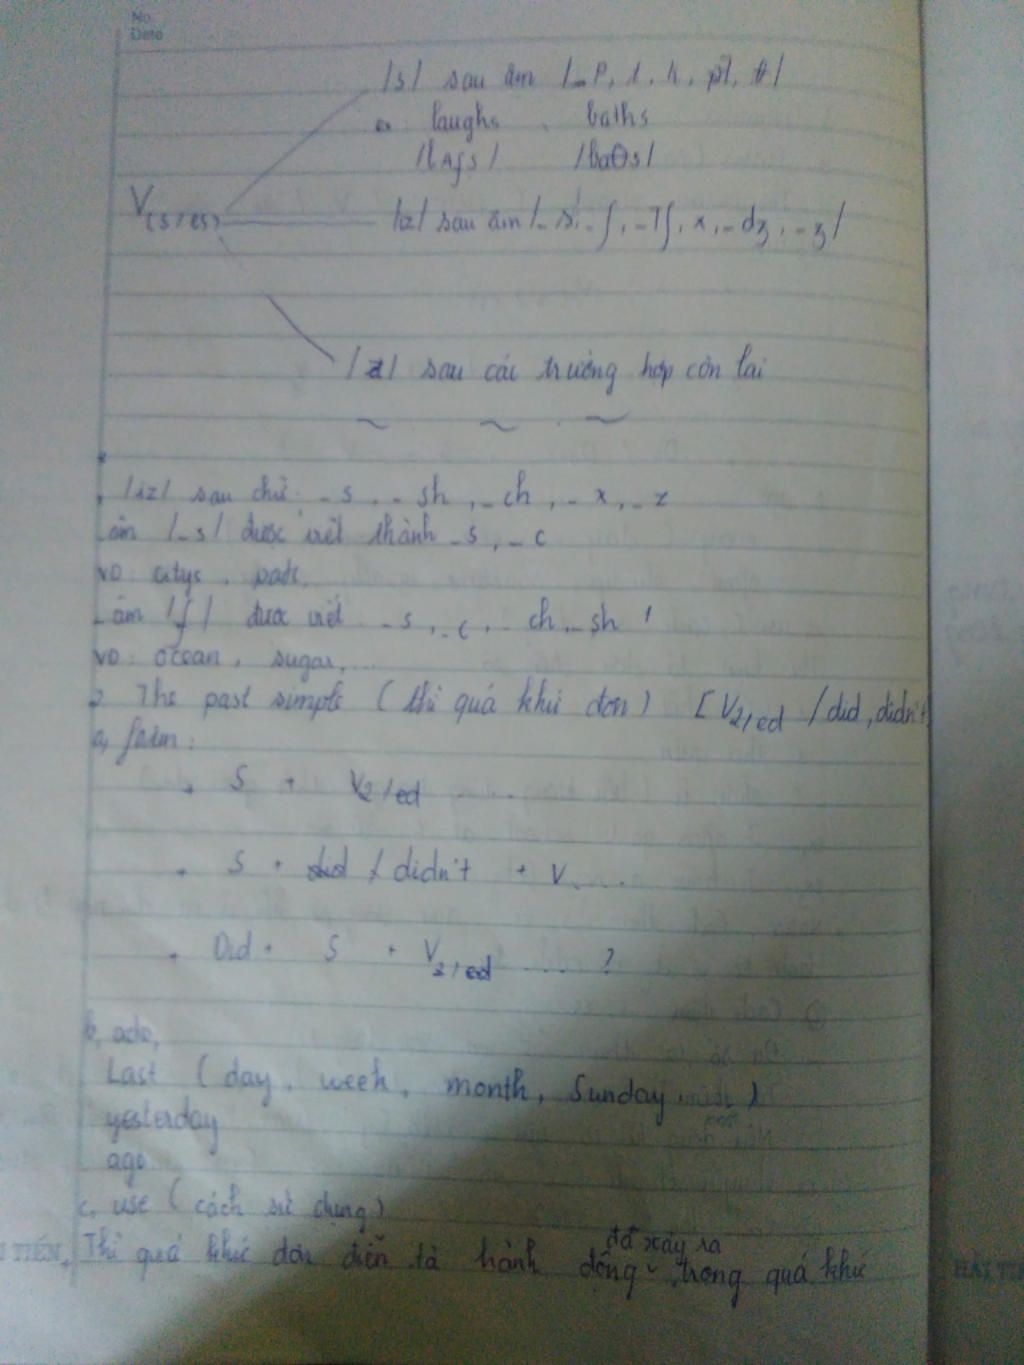 No.
Date
/s/ sau âm /_p, t, k, f, θ/
ex: laughs, baths
/lʌfs/ /baθs/
V(s/es)
/iz/ sau âm /_s, _ʃ, _tʃ, x, _dʒ, _ʒ/
/z/ sau các trường hợp còn lại
/iz/ sau chữ: _s, _sh, _ch, _x, _z
âm /_s/ được viết thành _s, _c
VD: citys,
âm /ʃ/ được viết _s, _c, _ch, _sh
VD: ocean, sugar,
2. The past simple (thì quá khứ đơn) [V2/ed / did, didn't
a, form:
. S + V2/ed
. S + did / didn't + V
. Did + S + V2/ed ..... ?
b, adv,
Last (day, week, month, Sunday, ...)
yesterday
ago
c, use (cách sử dụng)
đã xảy ra
TIẾN. Thì quá khứ đơn diễn tả hành động trong quá khứ
HẢI TI